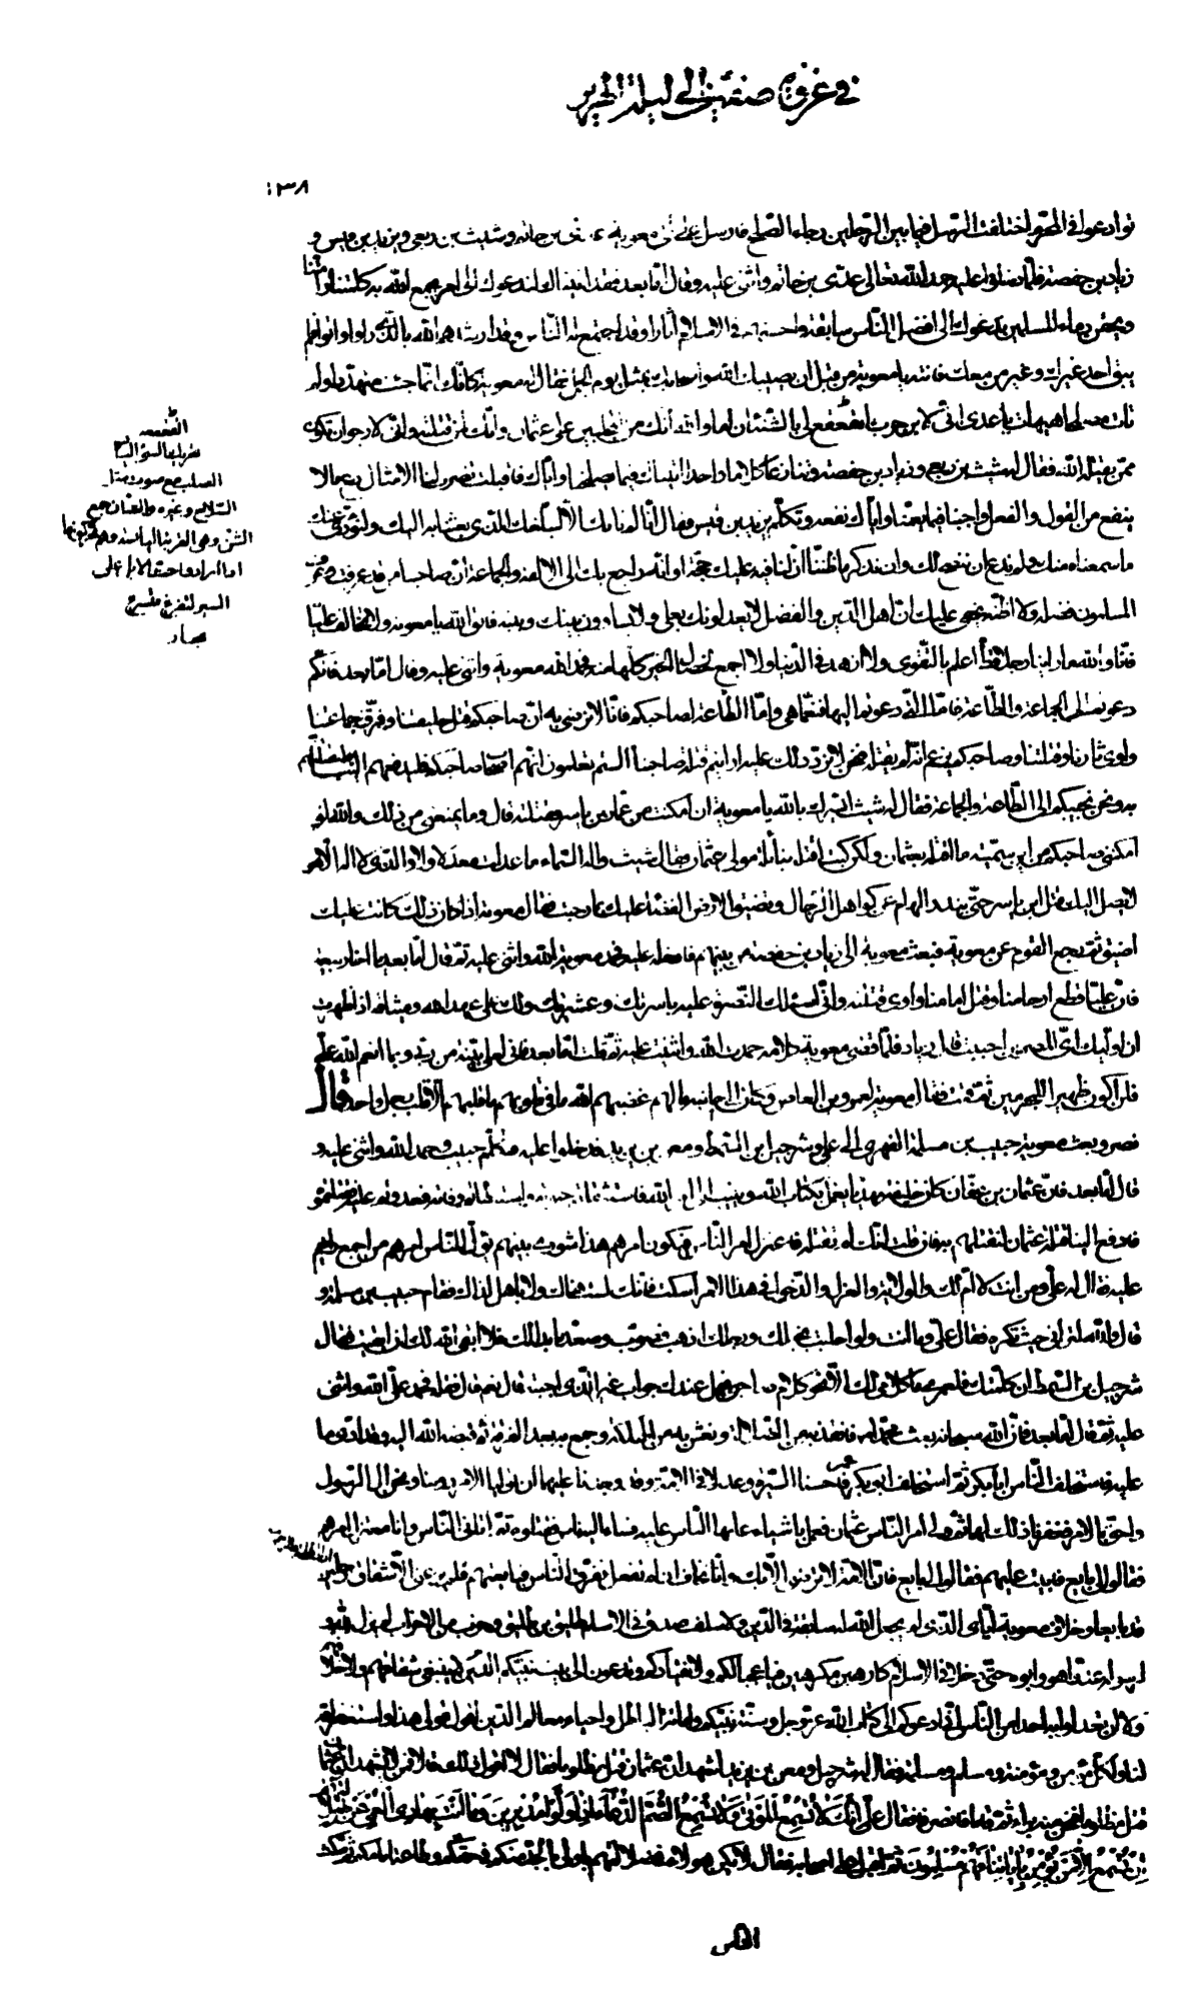 في غزوة صفين الى ليلة الهرير
توادعوا في المحرم اختلفت الرسل فيما بين الرجلين رجاء الصلح فارسل علي الى معوية عدي بن حاتم وشبث بن ربعي ويزيد بن قيس و
زياد بن خصفة فلما دخلوا عليه حمد الله تعالى عدي بن حاتم واثنى عليه وقال اما بعد فقد اتيناك لندعوك الى امر يجمع الله به كلمتنا وامتنا
ويحقن دماء المسلمين ندعوك الى افضل الناس سابقة واحسنهم في الاسلام آثارا وقد اجتمع له الناس وقد ارشدهم الله بالذي راوا واتوا فلم
يبق احد غيرك وغير من معك فانته يا معوية من قبل ان يصيبك الله واصحابك بمثل يوم الجمل فقال له معوية كانك انما جئت متهددا ولم
تات مصلحا هيهات يا عدي اني لابن حرب ما يقعقع لي بالشنان اما والله انك من المجلبين على عثمان وانك لمن قتلته واني لارجو ان تكون
ممن يقتله الله فقال له شبث بن ربعي وزياد بن خصفة وتنازعا كلاما واحدا اتيناك فيما يصلحنا واياك فاقبلت تضرب لنا الامثال دع ما لا
ينفع من القول والفعل واجبنا فيما يعمنا واياك نفعه وتكلم يزيد بن قيس فقال انا لم ناتك الا لنبلغك الذي بعثنا به اليك ولنؤدي عنك
ما سمعناه منك ولم ندع ان ننصح لك وان نذكر ما ظننا ان لنا فيه عليك حجة او انه راجع بك الى الالفة والجماعة ان صاحبنا من قد عرفت وعرف
المسلمون فضله ولا اظنه يخفى عليك ان اهل الدين والفضل لا يعدلونك بعلي ولا يساوون بينك وبينه فاتق الله يا معوية ولا تخالف عليا
فانا والله ما راينا رجلا قط اعلم بالتقوى ولا ازهد في الدنيا ولا اجمع لخصال الخير كلها منه فحمد الله معوية واثنى عليه وقال اما بعد فانكم
دعوتم الى الجماعة والطاعة فاما التي دعوتم اليها فنعما هي واما الطاعة لصاحبكم فانا لا نرضى به ان صاحبكم قتل خليفتنا وفرق جماعتنا
واوى ثارنا وقتلتنا وصاحبكم يزعم انه لم يقتله فنحن لا نرد ذلك عليه ارايتم قتلة صاحبنا الستم تعلمون انهم اصحاب صاحبكم فليدفعهم الينا فلنقتلهم
به ونحن نجيبكم الى الطاعة والجماعة فقال له شبث ايسرك بالله يا معوية ان امكنت من عمار بن ياسر فقتلته قال وما يمنعني من ذلك والله لو
امكنني صاحبكم من ابن سمية ما اقتله بعثمان ولكن كنت اقتله بنائل مولى عثمان فقال شبث واله السماء ما عدلت معدلا ولا والذي لا اله الا هو
لا تصل الى قتل ابن ياسر حتى يندر الهام عن كواهل الرجال وتضيق الارض الفضاء عليك بما رحبت فقال معوية اذا كان ذلك كانت عليك
اضيق ثم رجع القوم عن معوية فبعث معوية الى زياد بن خصفة من بينهم فادخله عليه فحمد معوية الله واثنى عليه ثم قال اما بعد يا اخا ربيعة
فان عليا قطع ارحامنا وقتل امامنا واوى قتلته واني اسئلك النصرة عليه باسرتك وعشيرتك ولك علي عهد الله وميثاقه اذا ظهرت
ان اوليك اي المصرين احببت قال زياد فلما قضى معوية كلامه حمدت الله واثنيت عليه ثم قلت اما بعد فاني لعلى بينة من ربي وبما انعم الله علي
فلن اكون ظهيرا للمجرمين ثم قمت فقال معوية لعمرو بن العاص وكان الى جانبه ما لهم غضبهم الله ما في قلوبهم ما قلبهم الا قلب رجل واحد قال
نصر وبعث معوية حبيب بن مسلمة الفهري الى علي وشرحبيل بن السمط ومعن بن يزيد فدخلوا عليه فتكلم حبيب وحمد الله واثنى عليه و
قال اما بعد فان عثمان بن عفان كان خليفة مهديا يعمل بكتاب الله وينيب الى امر الله فاستثقلتم حيوته واستبطاتم وفاته فعدوتم عليه فقتلتموه
فادفع الينا قتلة عثمان نقتلهم به فان قلت انك لم تقتله فاعتزل امر الناس فيكون امرهم هذا شورى بينهم يولي الناس امرهم من اجمع رايهم
عليه فقال له علي ومن انت لا ام لك والولاية والعزل والدخول في هذا الامر اسكت فانك لست هناك ولا باهل لذاك فقام حبيب بن مسلمة و
قال والله لتراني حيث تكره فقال علي وما انت ولو اجلبت بخيلك ورجلك اذهب فصوب وصعد ما بدا لك فلا ابقى الله لك ان ابقيت فقال
شرحبيل بن السمط ان كلمتك فلعمري ما كلامي لك الا نحو كلام صاحبي فهل عندك جواب غير الذي اجبته قال نعم قال فقله فحمد علي الله واثنى
عليه ثم قال اما بعد فان الله سبحانه بعث محمدا فانقذ به من الضلالة ونعش به من الهلكة وجمع به بعد الفرقة ثم قبضه الله اليه وقد ادى ما
عليه فاستخلف الناس ابا بكر ثم استخلف ابو بكر عمر فاحسنا السيرة وعدلا في الامة وقد وجدنا عليهما ان توليا الامر دوننا ونحن آل الرسول
واحق بالامر فغفرنا ذلك لهما ثم ولي امر الناس عثمان فعمل باشياء عابها الناس عليه فسار اليه ناس فقتلوه ثم اتاني الناس وانا معتزل امرهم
فقالوا لي بايع فابيت عليهم فقالوا لي بايع فان الامة لا ترضى الا بك وانا نخاف ان لم تفعل ان يفترق الناس فبايعتهم فلم يرعني الا شقاق رجلين
قد بايعا وخلاف معوية اياي الذي لم يجعل الله له سابقة في الدين ولا سلف صدق في الاسلام طليق بن طليق وحزب من الاحزاب لم يزل لله و
لرسوله عدوا هو وابوه حتى دخلا في الاسلام كارهين مكرهين فيا عجبا لكم ولانقيادكم وتدعون اهل بيت نبيكم الذين لا ينبغي شقاقهم ولا خلافهم
ولا ان تعدلوا بهم احدا من الناس اني ادعوكم الى كتاب الله عز وجل وسنة نبيكم واماتة الباطل واحياء معالم الدين اقول قولي هذا واستغفر الله
لنا ولكل مؤمن ومؤمنة ومسلم ومسلمة فقال له شرحبيل ومعن بن يزيد اتشهد ان عثمان قتل مظلوما فقال لا اقول ذلك قالا فمن لم يشهد ان عثمان
قتل مظلوما فنحن منه براء ثم قاما فانصرفا فقال علي انك لا تسمع الموتى ولا تسمع الصم الدعاء اذا ولوا مدبرين وما انت بهادي العمي عن ضلالتهم
ان تسمع الا من يؤمن باياتنا فهم مسلمون ثم اقبل على اصحابه فقال لا يكن هؤلاء في ضلالتهم اولى بالجد منكم في حقكم وطاعة امامكم ثم مكث
الناس
القعقعة
الصلب مع صوت مثل
السلاح وغيره والشنان جمع
الشن وهي القربة اليابسة وهم يحركونها
اذا ارادوا حث الابل على
السير لتفزع فتسرع